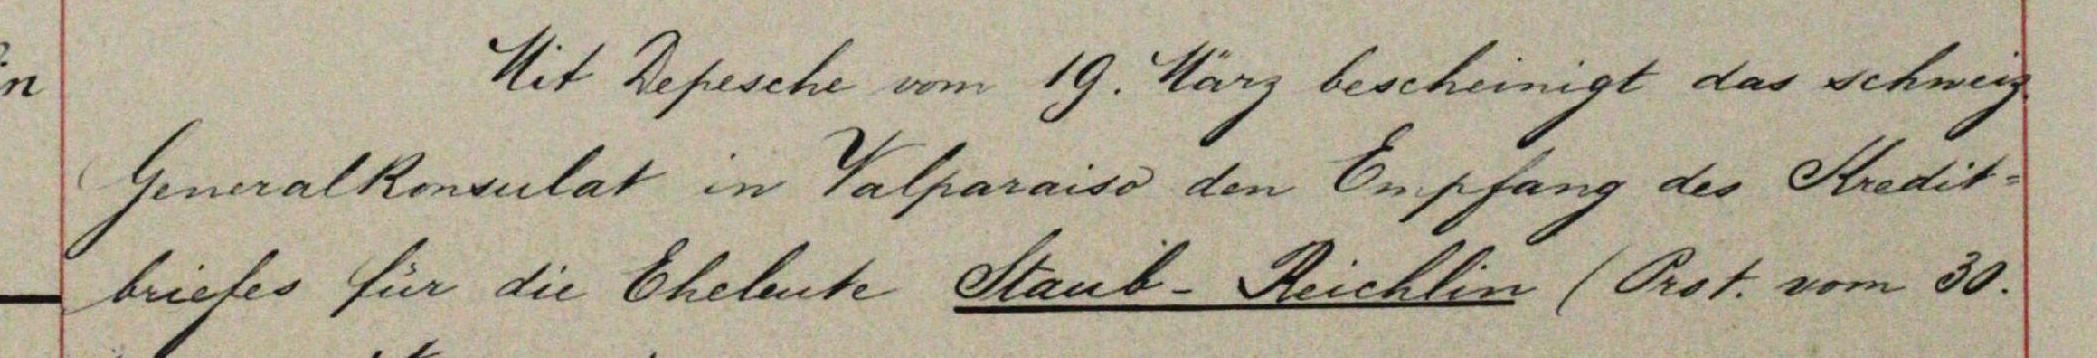 in
Mit Depesche vom 19. März bescheinigt das schweiz.
Generalkonsulat in Valparaiso den Empfang des Kredit=
briefes für die Eheleute Staub-Reichlin (Prot. vom 30.